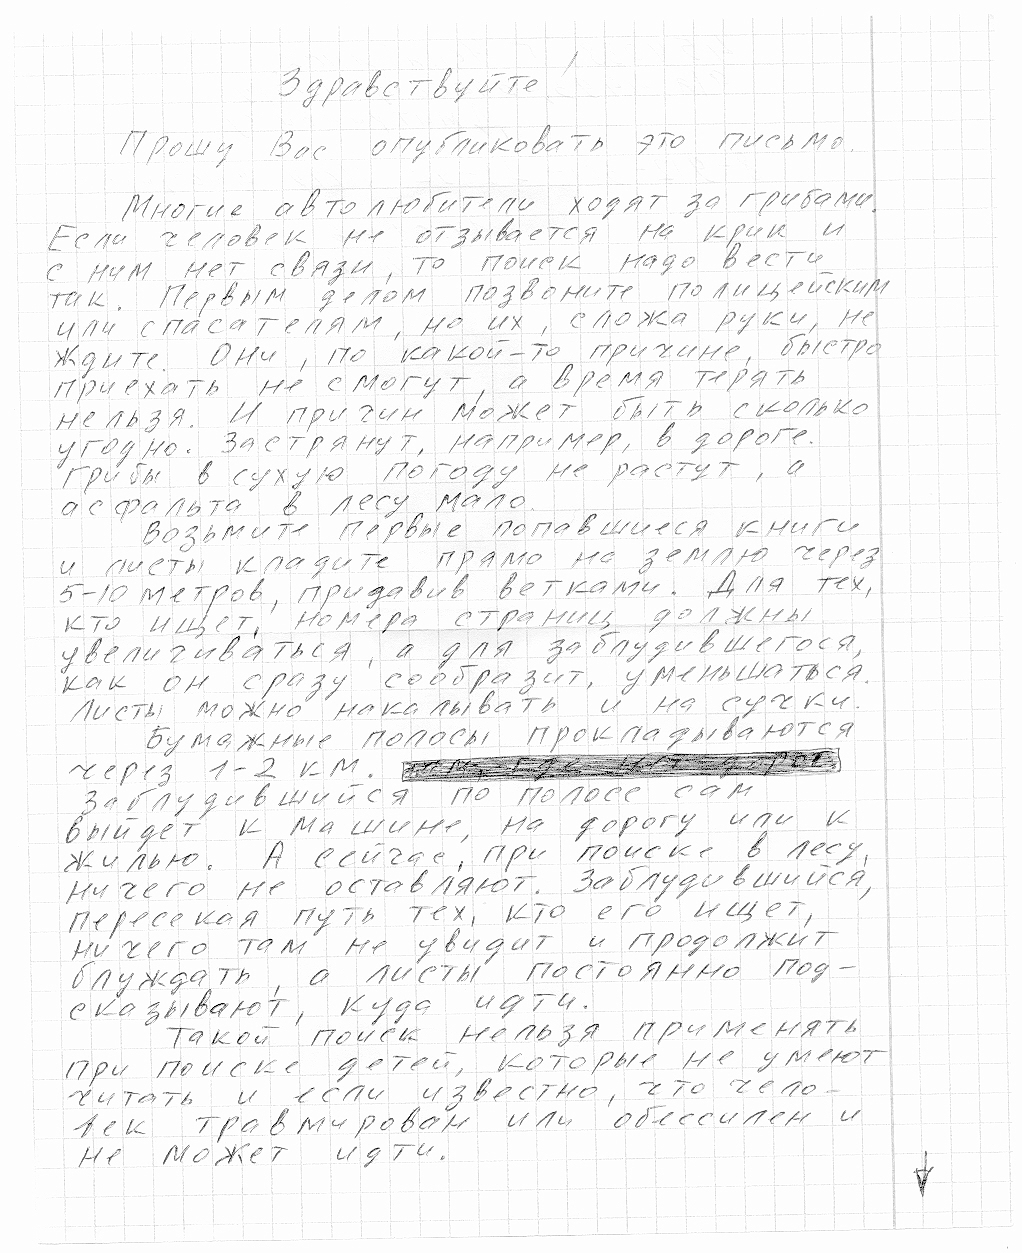 Здравствуйте!
Прошу Вас опубликовать это письмо.
Многие автолюбители ходят за грибами.
Если человек не отзывается на крик и
с ним нет связи, то поиск надо вести
так. Первым делом позвоните полицейским
или спасателям, но их, сложа руки, не
ждите. Они, по какой-то причине, быстро
приехать не смогут, а время терять
нельзя. И причин может быть сколько
угодно. Застрянут, например, в дороге.
Грибы в сухую погоду не растут, а
асфальта в лесу мало.
Возьмите первые попавшиеся книги
и листы кладите прямо на землю через
5-10 метров, придавив ветками. Для тех,
кто ищет, номера страниц должны
увеличиваться, а для заблудившегося,
как он сразу сообразит, уменьшаться.
Листы можно накалывать и на сучки.
Бумажные полосы прокладываются
через 1-2 км.
Заблудившийся по полосе сам
выйдет к машине, на дорогу или к
жилью. А сейчас, при поиске в лесу,
ничего не оставляют. Заблудившийся,
пересекая путь тех, кто его ищет,
ничего там не увидит и продолжит
блуждать, а листы постоянно под-
сказывают, куда идти.
Такой поиск нельзя применять
при поиске детей, которые не умеют
читать и если известно, что чело-
век травмирован или обессилен и
не может идти.